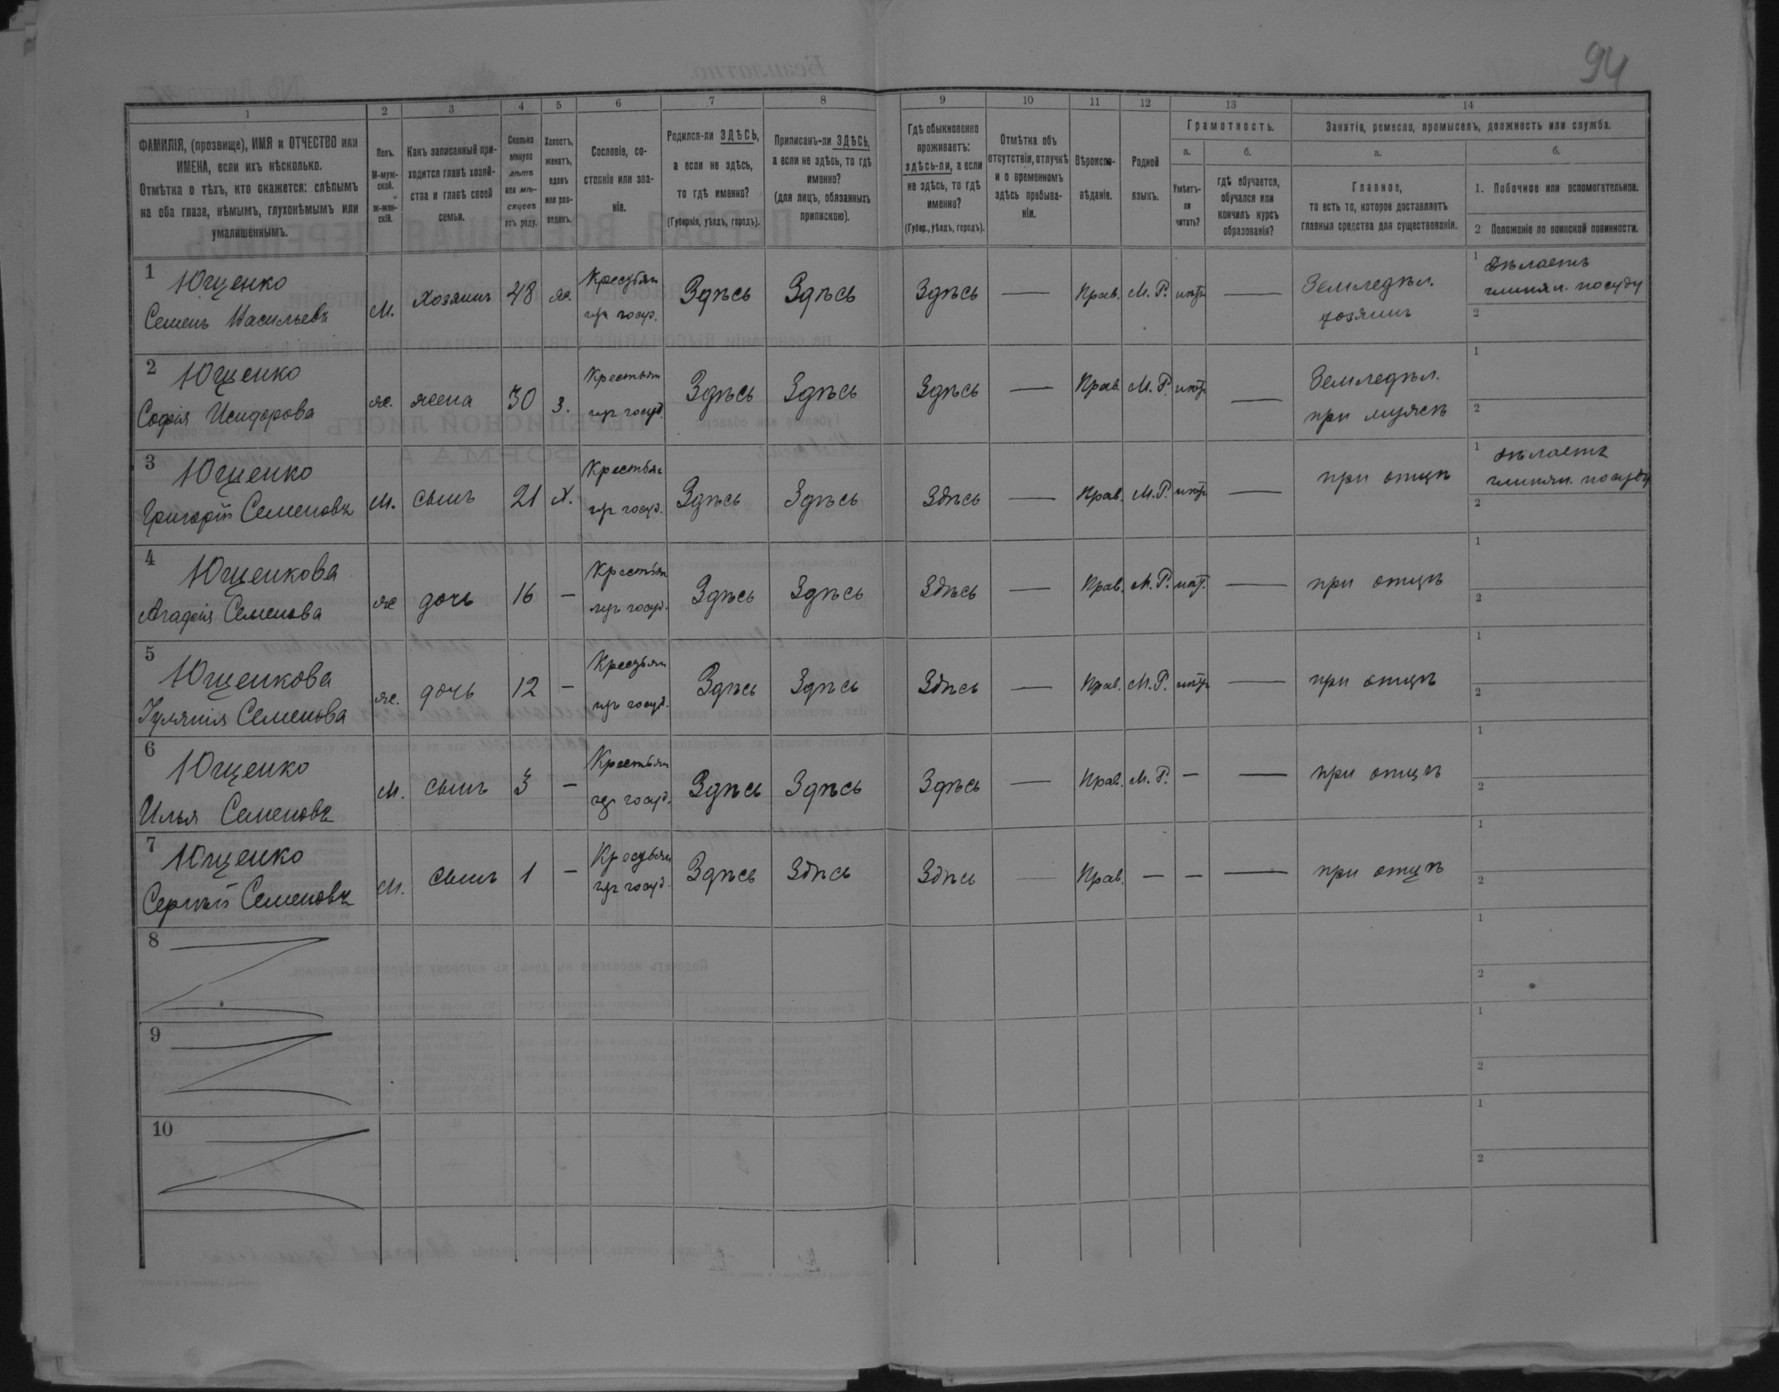 94
1 2 3 4 5 6 7 8 9 10 11 12 13 14
ФАМИЛІЯ, (прозвище), ИМЯ и ОТЧЕСТВО или
ИМЕНА, если ихъ нѣсколько.
Отмѣтка о тѣхъ, кто окажется: слѣпымъ
на оба глаза, нѣмымъ, глухонѣмымъ или
умалишеннымъ.
Полъ.
М-муж-
ской.
ж-жен-
скій.
Какъ записанный при-
ходится главѣ хозяй-
ства и главѣ своей
семьи.
Сколько
минуло
лѣтъ
или мѣ-
сяцевъ
отъ роду.
Холостъ,
женатъ,
вдовъ
или раз-
веденъ.
Сословіе, со-
стояніе или зва-
ніе.
Родился-ли ЗДѢСЬ,
а если не здѣсь,
то гдѣ именно?
(Губернія, уѣздъ, городъ).
Приписанъ-ли ЗДѢСЬ,
а если не здѣсь, то гдѣ
именно?
(для лицъ, обязанныхъ
припискою).
Гдѣ обыкновенно
проживаетъ:
здѣсь-ли, а если
не здѣсь, то гдѣ
именно?
(Губер., уѣздъ, городъ).
Отмѣтка объ
отсутствіи, отлучкѣ
и о временномъ
здѣсь пребыва-
ніи.
Вѣроиспо-
вѣданіе.
Родной
языкъ.
Грамотность.
а.
Умѣетъ-
ли
читать?
б.
гдѣ обучается,
обучался или
кончилъ курсъ
образованія?
Занятіе, ремесло, промыселъ, должность или служба.
а.
Главное,
то есть то, которое доставляетъ
главныя средства для существованія.
б.
1. Побочное или вспомогательное.
2 Положеніе по воинской повинности.
1 Ющенко
Семенъ Васильевъ
М. хозяинъ 48 же.
Здѣсь Здѣсь Здѣсь — Прав. М. Р. —
Земледѣл.
хозяинъ
1 дѣлаетъ
глинян. посуду
2
2 Ющенко
Софія Исидорова
же. жена 30 з.
Крестьян
Здѣсь Здѣсь Здѣсь — Прав М. Р. —
Земледѣл.
при мужѣ
1
2
3 Ющенко
Григорій Семеновъ
М. сынъ 21 х.
Здѣсь Здѣсь Здѣсь — Прав. М. Р. —
при отцѣ
1 дѣлаетъ
глинян. посуду
2
4 Ющенкова
Агафія Семенова
же дочь 16 —
Крестьян
Здѣсь Здѣсь Здѣсь — Прав. М. Р. —
при отцѣ
1
2
5 Ющенкова
Семенова
же. дочь 12 —
Здѣсь Здѣсь Здѣсь — Прав. М. Р. —
при отцѣ
1
2
6 Ющенко
Илья Семеновъ
М. сынъ 3 —
Крестьян
Здѣсь Здѣсь Здѣсь — Прав. М. Р. — —
при отцѣ
1
2
7 Ющенко
Сергѣй Семеновъ
М. сынъ 1 —
Здѣсь Здѣсь Здѣсь — Прав. — — —
при отцѣ
1
2
8
1
2
9
1
2
10
1
2